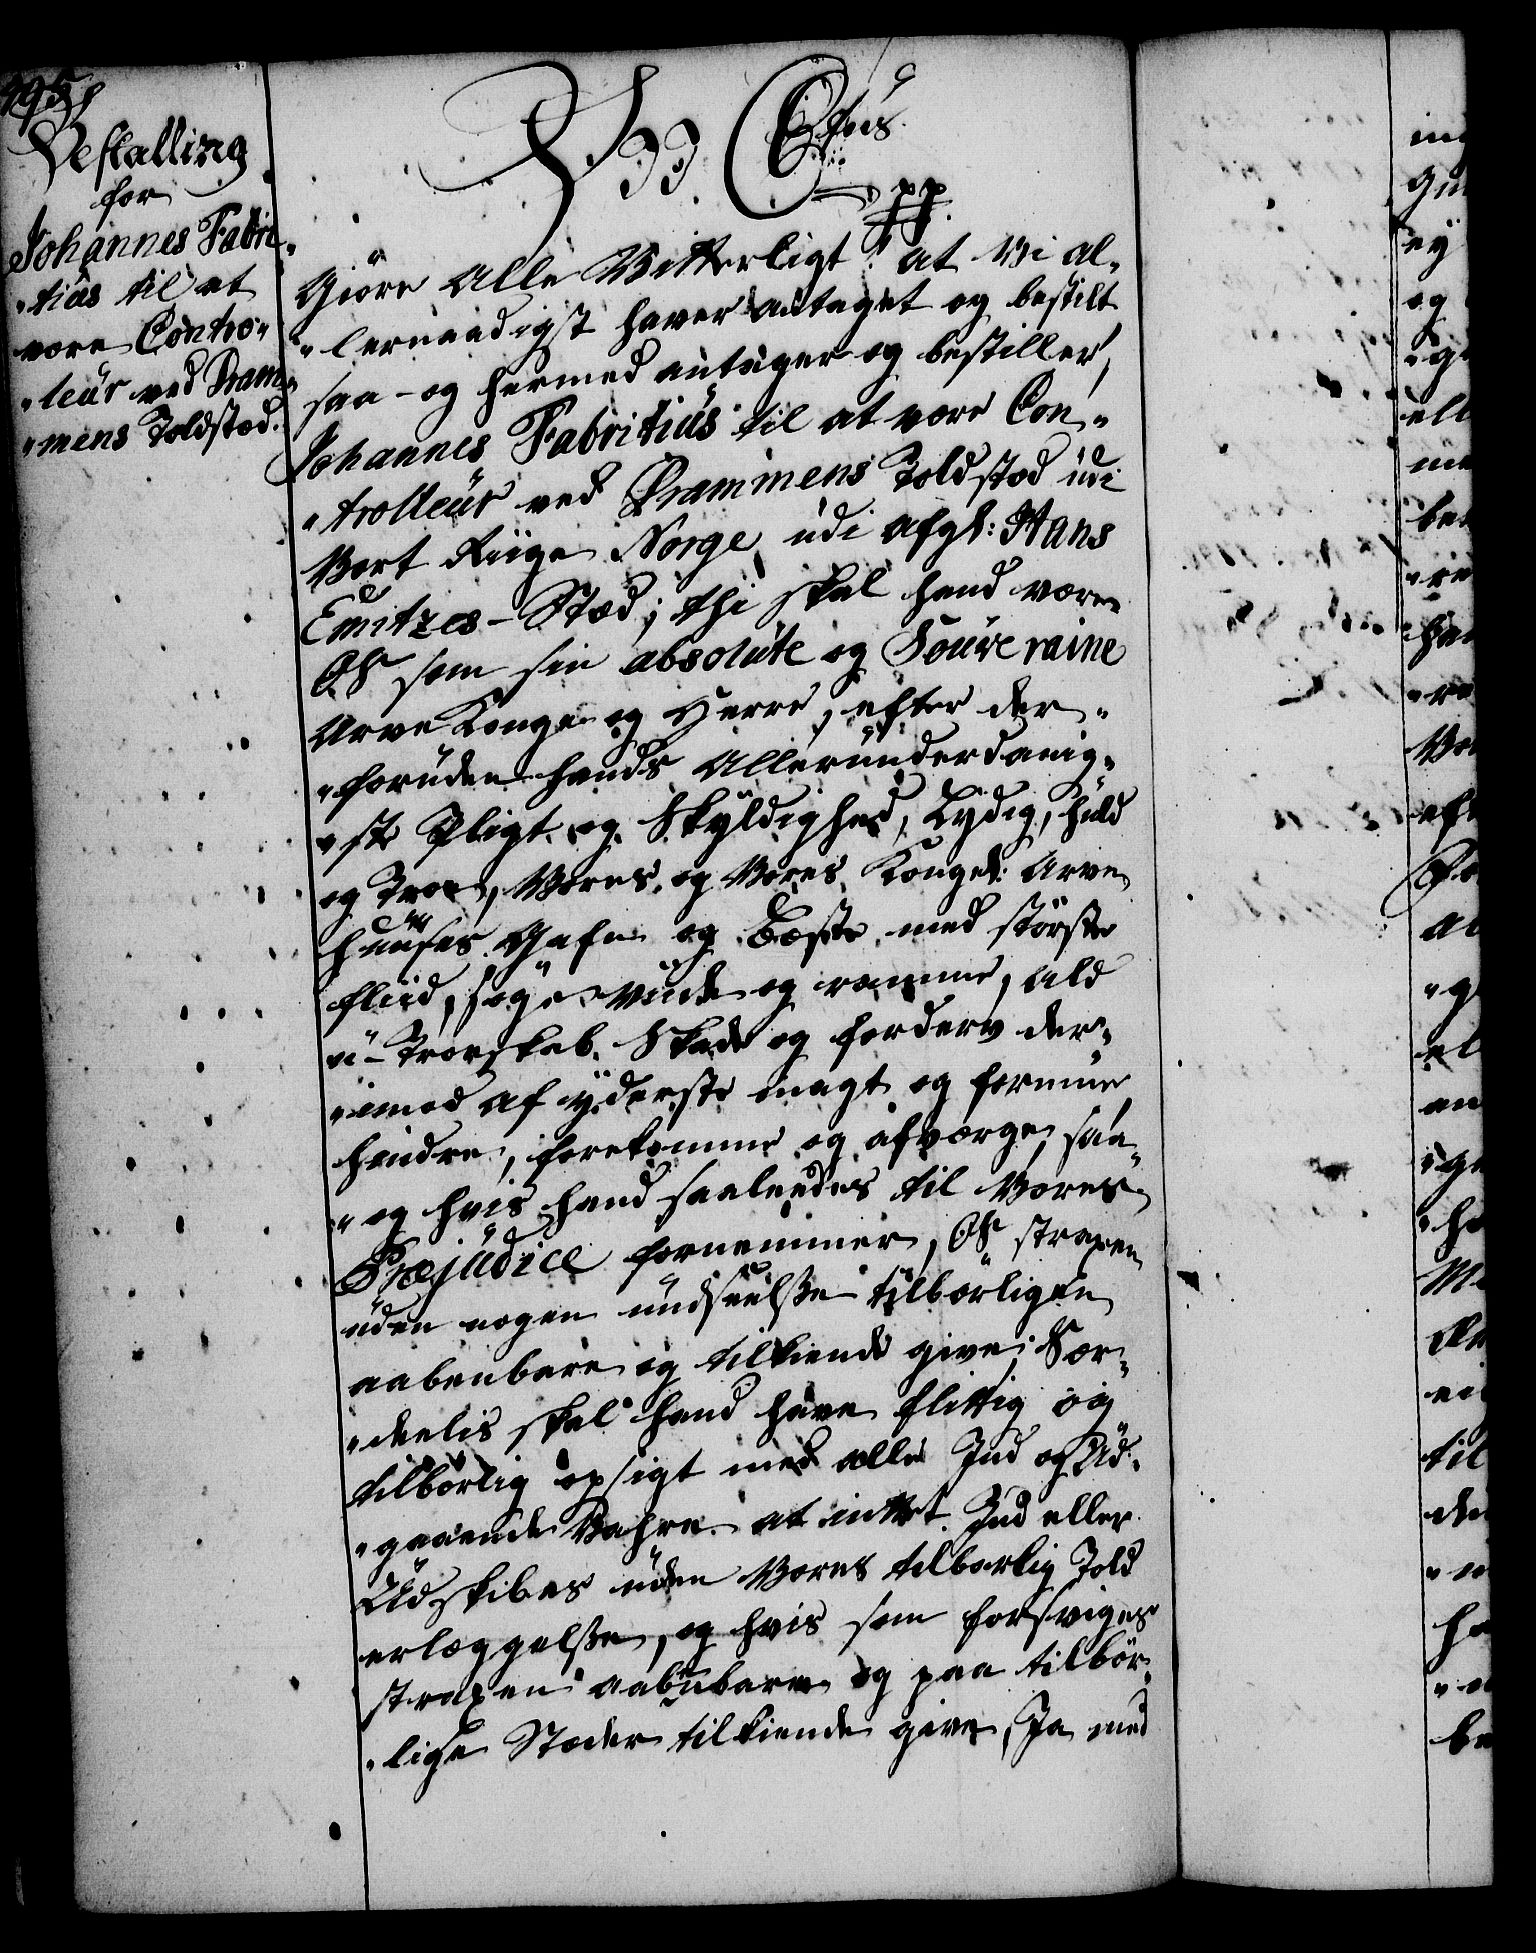 Bestalling
for
Johannes Fabri¬
"tius til at
være Contro"
"leur ved Dram¬
"mens Toldstæd.
Vii C 6tus
pp
Giöre Alle Vitterligt: at Vi al¬
"lernaadigst haver antaget og bestilt
saa - og hermed antager og bestiller,
Johannes Fabritius til at være Con¬
"trolleur ved Drammens Toldstæd udi
Vort Riige Norge, udi afgl: Hans
Emitzes - Stæd; thi skal hand være
Os som sin absolute og Souveraine
Arve Konge og Herre, efter der¬
"foruden hands Allerunderdanig¬
"ste Pligt og Skyldighed, Lydig, huld
og Troe, Vores og Vores Kongel: Arve
Huuses Gafn og Beste med störste
fliid, söge, viide og ramme, ald
u-Troeskab, Skade og forderv der¬
"imod af yderste magt og formue
hindre, forekomme og afværge, saa
"og hvis hand saaleedes til Vores
Præjudice fornemmer, Os strapen
uden nogen undseelsse tilbörligen
aabenbare og tilkiende give; Sær¬
"deelis skal hand have flittig og
tilbörlig opsigt med alle Ind og Ud¬
"gaaende Vahre at intet Ind eller
Udskibes uden Vores tilbörlig Told
erlæggelsse, og hvis som forsviges
strapen aabenbare og paa tilbör¬
"lige Stæder tilkiende give, Ja med